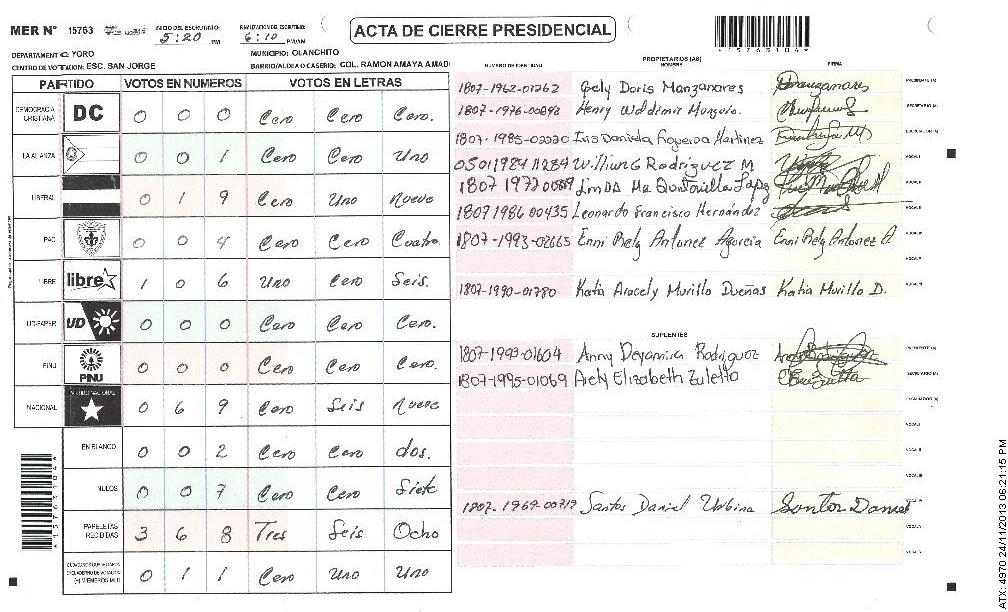 MER Nº 15763
INICIO DEL ESCRUTINIO: 5:20 PM
FINALIZACION DEL ESCRUTINIO: 6:10 PM/AM
ACTA DE CIERRE PRESIDENCIAL
*15763104*
DEPARTAMENTO: YORO
MUNICIPIO: OLANCHITO
CENTRO DE VOTACION: ESC. SAN JORGE
BARRIO/ALDEA O CASERIO: COL. RAMON AMAYA AMAD
PARTIDO VOTOS EN NUMEROS VOTOS EN LETRAS
DEMOCRACIA CRISTIANA DC 0 0 0 Cero Cero Cero.
LA ALIANZA 0 0 1 Cero Cero Uno
LIBERAL 0 1 9 Cero Uno Nueve
PAC 0 0 4 Cero Cero Cuatro
LIBRE libre 1 0 6 Uno Cero Seis.
UD-FAPER UD 0 0 0 Cero Cero Cero.
PINU PINU 0 0 0 Cero Cero Cero.
NACIONAL PARTIDO NACIONAL 0 6 9 Cero Seis Nueve
EN BLANCO 0 0 2 Cero Cero dos.
NULOS 0 0 7 Cero Cero Siete
PAPELETAS RECIBIDAS 3 6 8 Tres Seis Ocho
(+) MIEMBROS MER 0 1 1 Cero Uno Uno
*15763104*
PROPIETARIOS (AS)
NUMERO DE IDENTIDAD NOMBRE FIRMA
1807-1962-01262 Gely Doris Manzanares Manzanares PRESIDENTE (A)
1807-1976-00892 Henry Woldimir Munguia. SECRETARIO (A)
1807-1985-02230 Iris Daniela Figueroa Martinez ESCRUTADOR (A)
Willian G Rodriguez M VOCAL I
Linda Ma Quintanilla Lopez VOCAL II
1807 1986 00435 Leonardo Francisco Hernández VOCAL III
1807-1993-02665 Enni Rely Antonez Agurcia Enni Rely Antonez A. VOCAL IV
VOCAL V
1807-1990-01780 Katia Aracely Murillo Dueñas Katia Murillo D. VOCAL VI
SUPLENTES
1807-1993-01604 Anny Deyamira Rodriguez PRESIDENTE (A)
1807-1995-01069 Arely Elizabeth Zuletto SECRETARIO (A)
ESCRUTADOR (A)
VOCAL I
VOCAL II
VOCAL III
1807-1969-00719 Santos Daniel Urbina Santos Daniel VOCAL IV
VOCAL V
VOCAL VI
ATX: 4970 24/11/2013 06:21:15 PM